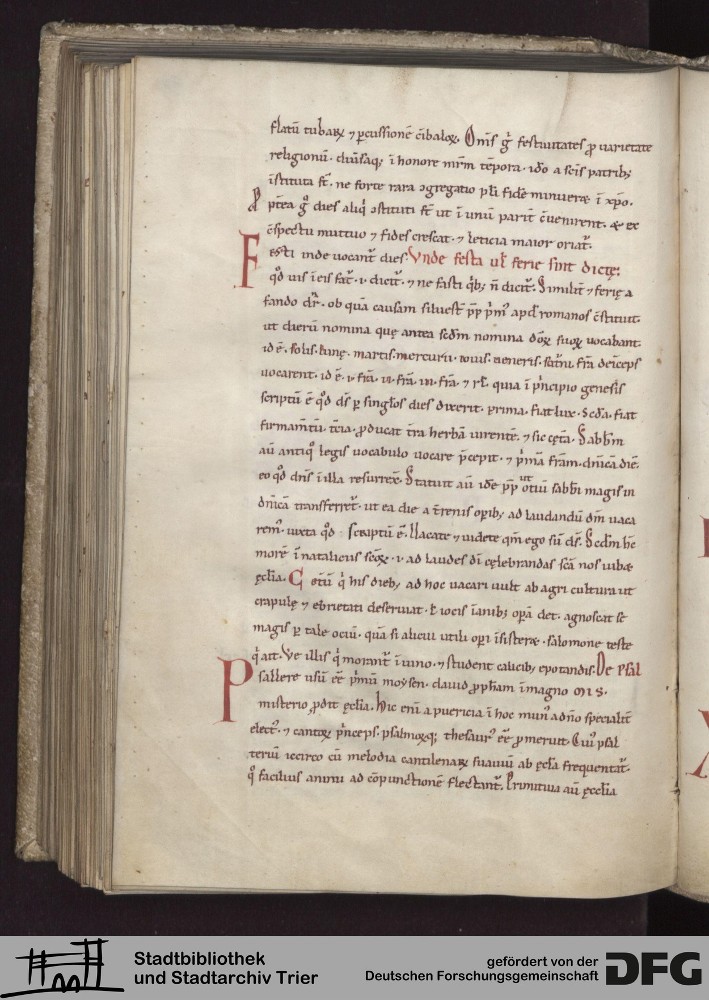 flatū tubaꝝ ⁊ ꝑcussionē cībaloꝝ. Om̄s gͥ festiuitates ꝓ uarietate
religionū. diuīsaqꝫ ī honore mr̄m tēpora. ido a scīs patribꝫ
īstituta st̄. ne forte rara ↄgregatio ppl̄i fidē minueret ī xp̄o.
Ppt̄ea gͦ dies aliqͥ ↄstituti st̄ ut ī unū parit̄ c̄uenirent. ⁊ ex
c̄spectu muttuo ⁊ fides crescat. ⁊ leticia maior oriat᷑.
Festi inde uocant᷑ dies. Vnde festa ul̄ ferie sint dictę:
qd̄ uis ī eis fat᷑. ı. dicit᷑. ⁊ ne fasti qͥbꝫ n̄ dicit᷑. Similit̄ ⁊ ferię a
fando dr̄. ob quā causam siluest̄ pp̄ pͥmꝰ apd̄ romanos c̄stituit.
ut dierū nomina quę antea scdm̄ nomina dōꝝ suoꝝ uocabant.
id ē. solis. lunę. martis. mercurii. iouis. ueneris. sat̄ni. fr̄a deīceps
uocarent. id ē. ı. fr̄a. ıı. fr̄a. ııı. fr̄a. ⁊ rl̄. quia ī pͥncipio genesis
scriptū ē qd̄ ds̄ ꝑ singl̄os dies dixerit. prima. fiat lux. Scd̄a. fiat
firmam̄tū. t̄cia. ꝓducat t̄ra herbā uirentē. ⁊ sic cęt̄a. Sabb̄m
aū antiqͦ legis uocabulo uocare p̄cepit. ⁊ pͥmā fr̄am. dn̄icā diē.
eo qd̄ dn̄s ī illa resurrex̄. Statuit aū idē pp̄ ut otiū sabb̄i magis in
dn̄icā transferret᷑. ut ea die a t̄renis opibꝫ ad laudandū dm̄ uaca
remꝰ. iuxta qd̄ scriptū ē. Uacate ⁊ uidete qm̄ ego sū ds̄. Scdm̄ hc̄
morē ī nataliciis scōꝝ. ı. ad laudes dī cęlebrandas scā nos iubet
ęcl̄ia. Cotū qͥ his diebꝫ ad hoc uacari uult ab agri cultura ut
crapulę ⁊ ebrietati deseruiat. l̄ iocis īanibꝫ opā det. agnoscat se
magis ꝑ tale ociū. quā si alicui utili opi īsisteret. salomone teste
qͥ ait. Ve illis qͥ morant᷑ ī uino. ⁊ student calicibꝫ epotandis. De psal
Psallere usū eē pͥmū moysen. dauid ꝓph̄am ī magno mıs.
misterio ꝓdit ęcl̄ia. Hic enī a puericia ī hoc munꝰ a dn̄o specialit̄
electꝰ. ⁊ cantoꝝ pͥnceps. psalmoꝝqꝫ thesaurꝰ eē ꝓmeruit. Cuiꝰ psal
teriū iccirco cū melodia cantilenaꝝ suauiū ab ęcl̄ia frequentat᷑.
qͦ facilius animi ad cōpunctionē flectant᷑. Primitiua aū ęccl̄ia
Stadtbibliothek
und Stadtarchiv Trier
gefördert von der
Deutschen Forschungsgemeinschaft
DFG